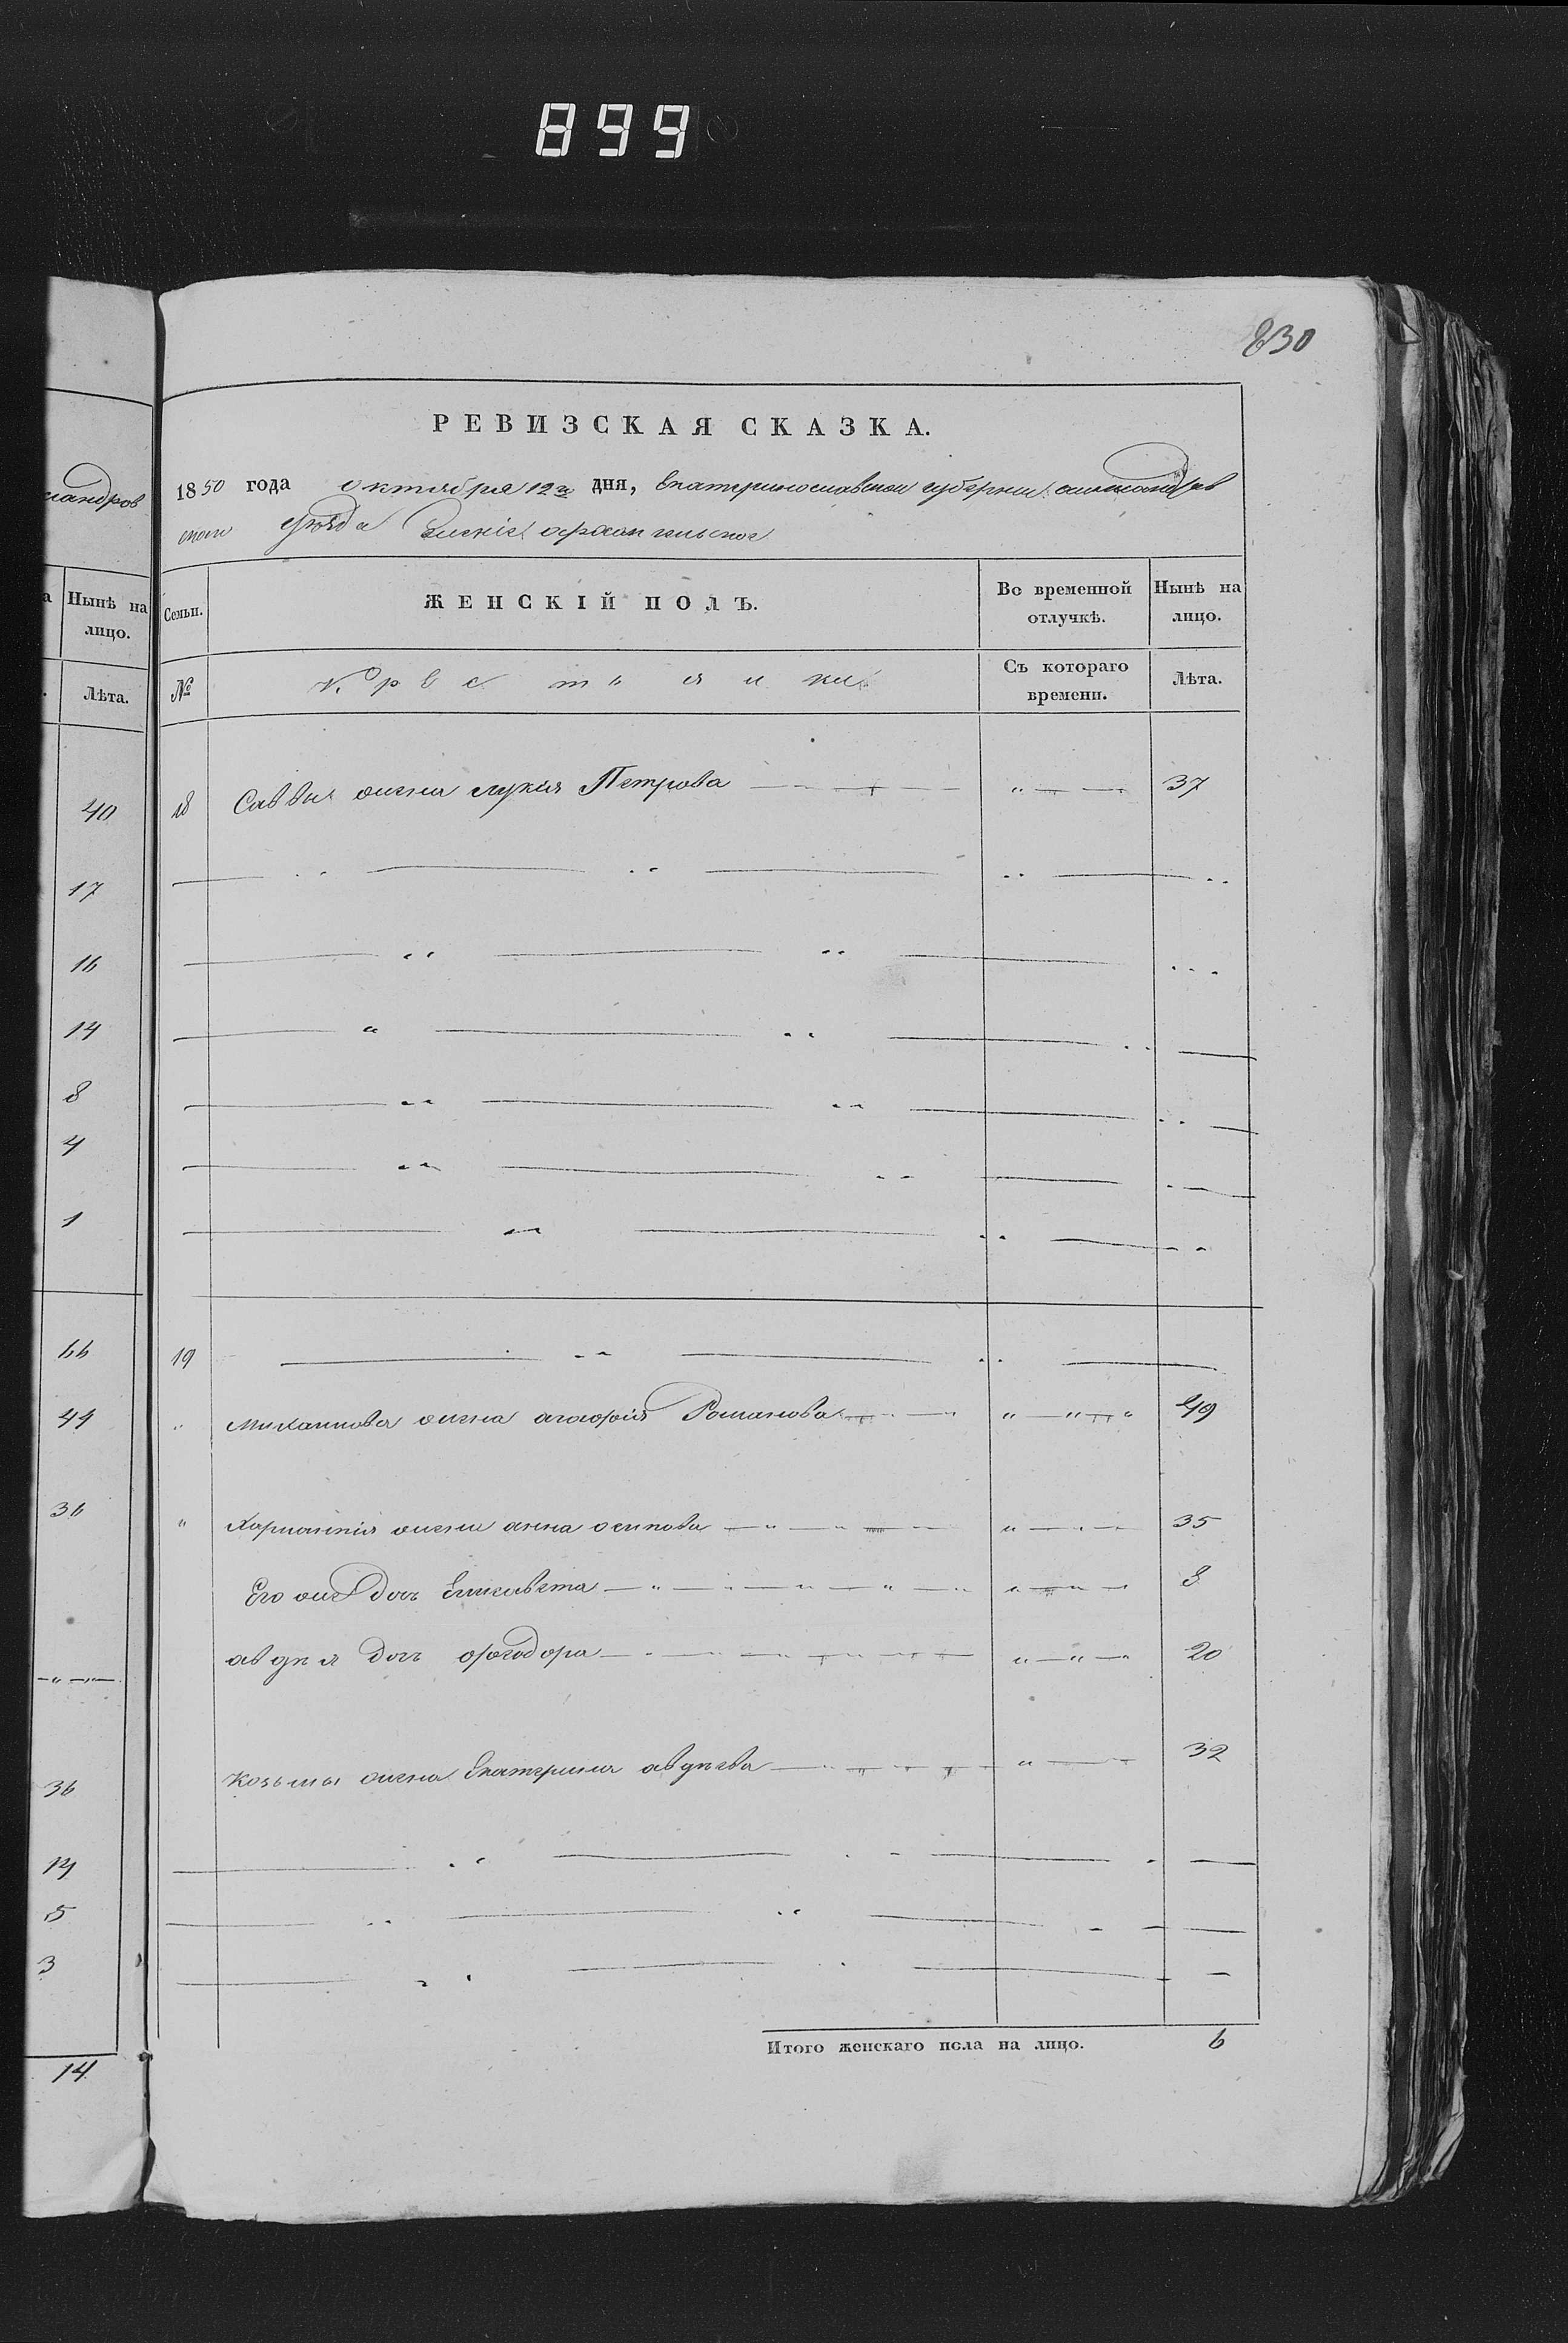 899
830
РЕВИЗСКАЯ СКАЗКА.
1850 года октября 12го дня, Екатеринославской губернии александров
ского уѣзда архангельское
сандров
Нынѣ на лицо.
Лѣта.
40
17
16
14
8
4
1
66
44
36
36
14
5
3
14
Семьи. ЖЕНСКІЙ ПОЛЪ. Во временной отлучкѣ. Нынѣ на лицо.
№ Крестянки Съ котораго времени. Лѣта.
18 Саввы жена лукія Петрова 37
19
" Михаилова жена агафія Романова " 49
" Харлампія жена анна осипова " 35
Его же дочь Елисавета " 8
авдѣя дочь " 20
козьмы жена Екатерина авдѣева " 32
Итого женскаго пола на лицо. 6